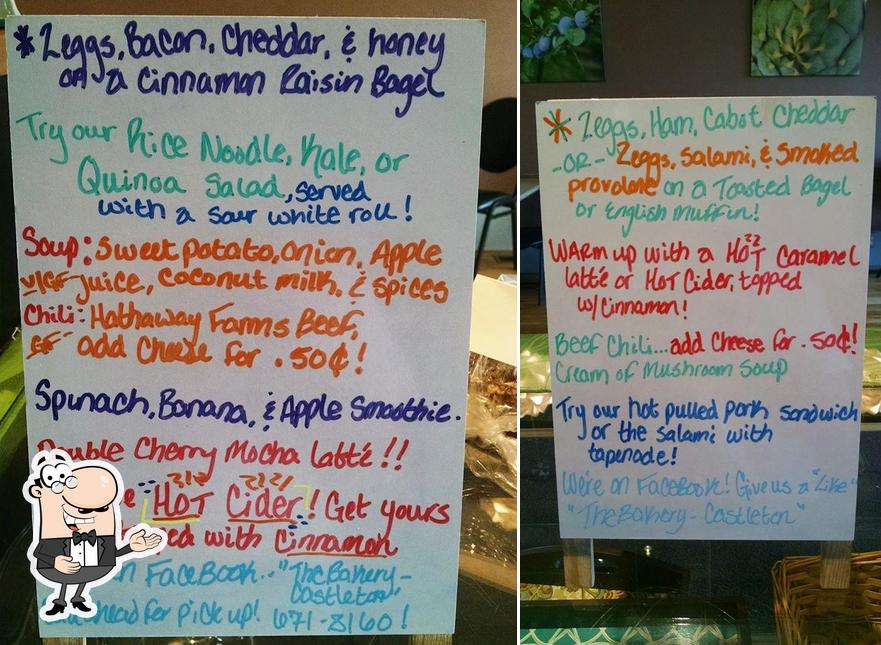 * 2eggs, Bacon, Cheddar, & honey
on a Cinnamon Raisin Bagel
Try our Rice Noodle, Kale, or
Quinoa Salad, served
with a sour white roll!
Soup: Sweet potato, Onion, Apple
GF juice, coconut milk, & spices
Chili: Hathaway Farms Beef,
GF add Cheese for .50¢!
Spinach, Banana, & Apple Smoothie.
Double Cherry Mocha latté!!
HOT Cider! Get yours
with Cinnamon
FaceBook.. "The Bakery-
Castleton"
ahead for pick up! 671-8160!
* 2eggs, Ham, Cabot Cheddar
-OR- 2eggs, Salami, & Smoked
provolone on a Toasted Bagel
or English Muffin!
Warm up with a HOT Caramel
latté or HOT Cider, topped
w/Cinnamon!
Beef Chili... add Cheese for .50¢!
Cream of Mushroom Soup
Try our hot pulled pork sandwich
or the salami with
tapenade!
We're on FaceBook! Give us a "Like"
"The Bakery - Castleton"